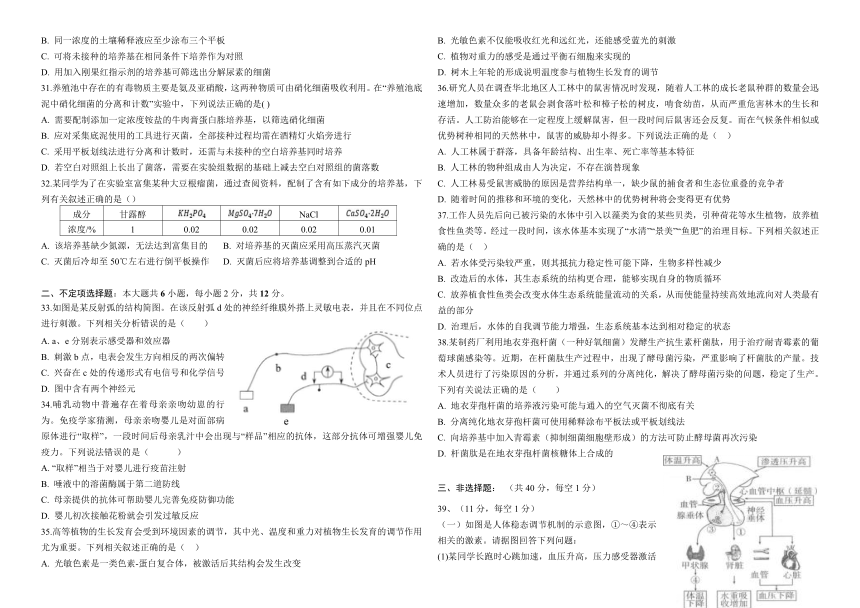 B. 同一浓度的土壤稀释液应至少涂布三个平板
C. 可将未接种的培养基在相同条件下培养作为对照
D. 用加入刚果红指示剂的培养基可筛选出分解尿素的细菌
31.养殖池中存在的有毒物质主要是氨及亚硝酸,这两种物质可由硝化细菌吸收利用。在“养殖池底
泥中硝化细菌的分离和计数”实验中，下列说法正确的是( )
A. 需要配制添加一定浓度铵盐的牛肉膏蛋白胨培养基，以筛选硝化细菌
B. 应对采集底泥使用的工具进行灭菌，全部接种过程均需在酒精灯火焰旁进行
C. 采用平板划线法进行分离和计数时，还需与未接种的空白培养基同时培养
D. 若空白对照组上长出了菌落，需要在实验组数据的基础上减去空白对照组的菌落数
32.某同学为了在实验室富集某种大豆根瘤菌，通过查阅资料，配制了含有如下成分的培养基，下
列有关叙述正确的是（）
成分 甘露醇 KH₂PO₄ MgSO₄·7H₂O NaCl CaSO₄·2H₂O
浓度/% 1 0.02 0.02 0.02 0.01
A. 该培养基缺少氮源，无法达到富集目的 B. 对培养基的灭菌应采用高压蒸汽灭菌
C. 灭菌后冷却至 50℃左右进行倒平板操作 D. 灭菌后应将培养基调整到合适的 pH
二、不定项选择题：本大题共 6 小题，每小题 2 分，共 12 分。
33.如图是某反射弧的结构简图。在该反射弧 d 处的神经纤维膜外搭上灵敏电表，并且在不同位点
进行刺激。下列相关分析错误的是（ ）
A. a、e 分别表示感受器和效应器
B. 刺激 b 点，电表会发生方向相反的两次偏转
C. 兴奋在 c 处的传递形式有电信号和化学信号
D. 图中含有两个神经元
a
b
c
d
e
34.哺乳动物中普遍存在着母亲亲吻幼崽的行
为。免疫学家猜测，母亲亲吻婴儿是对面部病
原体进行“取样”，一段时间后母亲乳汁中会出现与“样品”相应的抗体，这部分抗体可增强婴儿免
疫力。下列说法错误的是（ ）
A. “取样”相当于对婴儿进行疫苗注射
B. 唾液中的溶菌酶属于第二道防线
C. 母亲提供的抗体可帮助婴儿完善免疫防御功能
D. 婴儿初次接触花粉就会引发过敏反应
35.高等植物的生长发育会受到环境因素的调节，其中光、温度和重力对植物生长发育的调节作用
尤为重要。下列相关叙述正确的是（ ）
A. 光敏色素是一类色素-蛋白复合体，被激活后其结构会发生改变
B. 光敏色素不仅能吸收红光和远红光，还能感受蓝光的刺激
C. 植物对重力的感受是通过平衡石细胞来实现的
D. 树木上年轮的形成说明温度参与植物生长发育的调节
36.研究人员在调查华北地区人工林中的鼠害情况时发现，随着人工林的成长老鼠种群的数量会迅
速增加，数量众多的老鼠会剥食落叶松和樟子松的树皮，啃食幼苗，从而严重危害林木的生长和
存活。人工防治能够在一定程度上缓解鼠害，但一段时间后鼠害还会反复。而在气候条件相似或
优势树种相同的天然林中，鼠害的威胁却小得多。下列说法正确的是（ ）
A. 人工林属于群落，具备年龄结构、出生率、死亡率等基本特征
B. 人工林的物种组成由人为决定，不存在演替现象
C. 人工林易受鼠害威胁的原因是营养结构单一，缺少鼠的捕食者和生态位重叠的竞争者
D. 随着时间的推移和环境的变化，天然林中的优势树种将会变得更有优势
37.工作人员先后向已被污染的水体中引入以藻类为食的某些贝类，引种荷花等水生植物，放养植
食性鱼类等。经过一段时间，该水体基本实现了“水清”“景美”“鱼肥”的治理目标。下列相关叙述正
确的是（ ）
A. 若水体受污染较严重，则其抵抗力稳定性可能下降，生物多样性减少
B. 改造后的水体，其生态系统的结构更合理，能够实现自身的物质循环
C. 放养植食性鱼类会改变水体生态系统能量流动的关系，从而使能量持续高效地流向对人类最有
益的部分
D. 治理后，水体的自我调节能力增强，生态系统基本达到相对稳定的状态
38.某制药厂利用地衣芽孢杆菌（一种好氧细菌）发酵生产抗生素杆菌肽，用于治疗耐青霉素的葡
萄球菌感染等。近期，在杆菌肽生产过程中，出现了酵母菌污染，严重影响了杆菌肽的产量。技
术人员进行了污染原因的分析，并通过系列的分离纯化，解决了酵母菌污染的问题，稳定了生产。
下列有关说法正确的是（ ）
A. 地衣芽孢杆菌的培养液污染可能与通入的空气灭菌不彻底有关
B. 分离纯化地衣芽孢杆菌可使用稀释涂布平板法或平板划线法
C. 向培养基中加入青霉素（抑制细菌细胞壁形成）的方法可防止酵母菌再次污染
D. 杆菌肽是在地衣芽孢杆菌核糖体上合成的
三、非选择题： （共 40 分，每空 1 分）
39、（11 分，每空 1 分）
（一）如图是人体稳态调节机制的示意图，①～④表示
相关的激素。请据图回答下列问题：
(1)某同学长跑时心跳加速，血压升高，压力感受器激活
体温升高
渗透压升高
A
B
心血管中枢（延髓）
血管
血压升高
腺垂体
神经垂体
③
①
甲状腺 肾脏 血管 心脏
④
体温下降
水重吸收增加
血压下降